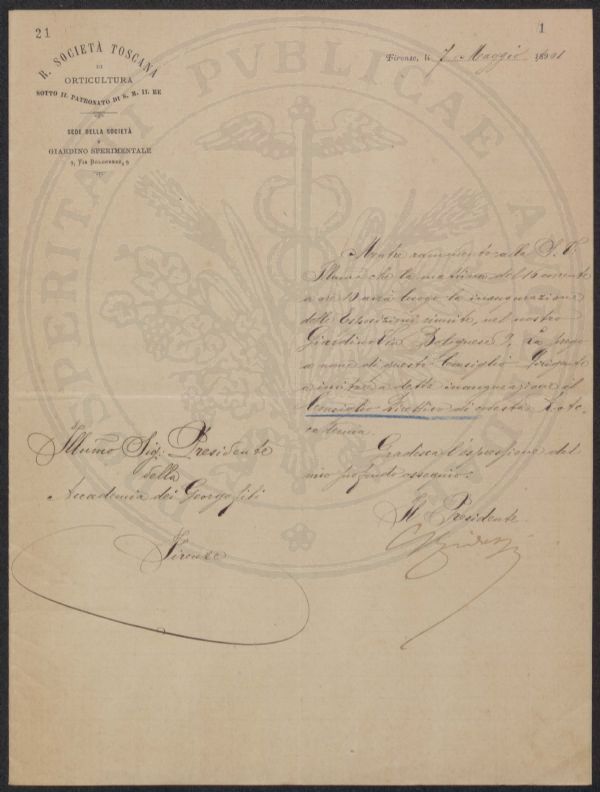 21
1
R. SOCIETÀ TOSCANA
DI
ORTICULTURA
SOTTO IL PATRONATO DI S. M. IL RE
SEDE DELLA SOCIETÀ
E
GIARDINO SPERIMENTALE
9, VIA BOLOGNESE, 9
Firenze, li 7 Maggio
PROSPERITATI PUBLICAE AUGENDAE
Mentre rammento alla S. V.
Illma che la mattina del corrente
a ore avrà luogo la inaugurazione
delle Esposizioni riunite, nel nostro
Giardino Via Bolognese 9, La prego
a nome di questo Consiglio Dirigente
a invitare detta inaugurazione il
Consiglio Direttivo di codesta
Gradisca l'espressione del
mio profondo ossequio.
Il Presidente
Illumo Sig. Presidente
della
Accademia dei Georgofili
Firenze